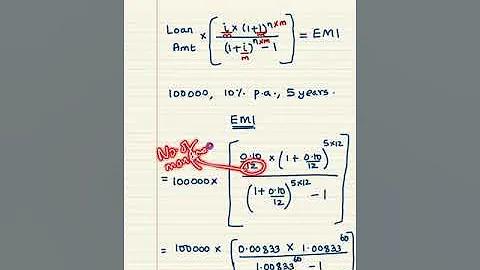 Loan Amt × ( i/m × (1+i/m)^n×m / (1+i/m)^n×m − 1 ) = EMI
100000, 10% p.a., 5 years.
EMI
No of
= 100000 × [ 0.10/12 × (1 + 0.10/12)^5×12 / (1 + 0.10/12)^5×12 − 1 ]
= 100000 × [ 0.00833 × 1.00833^60 / 1.00833^60 − 1 ]